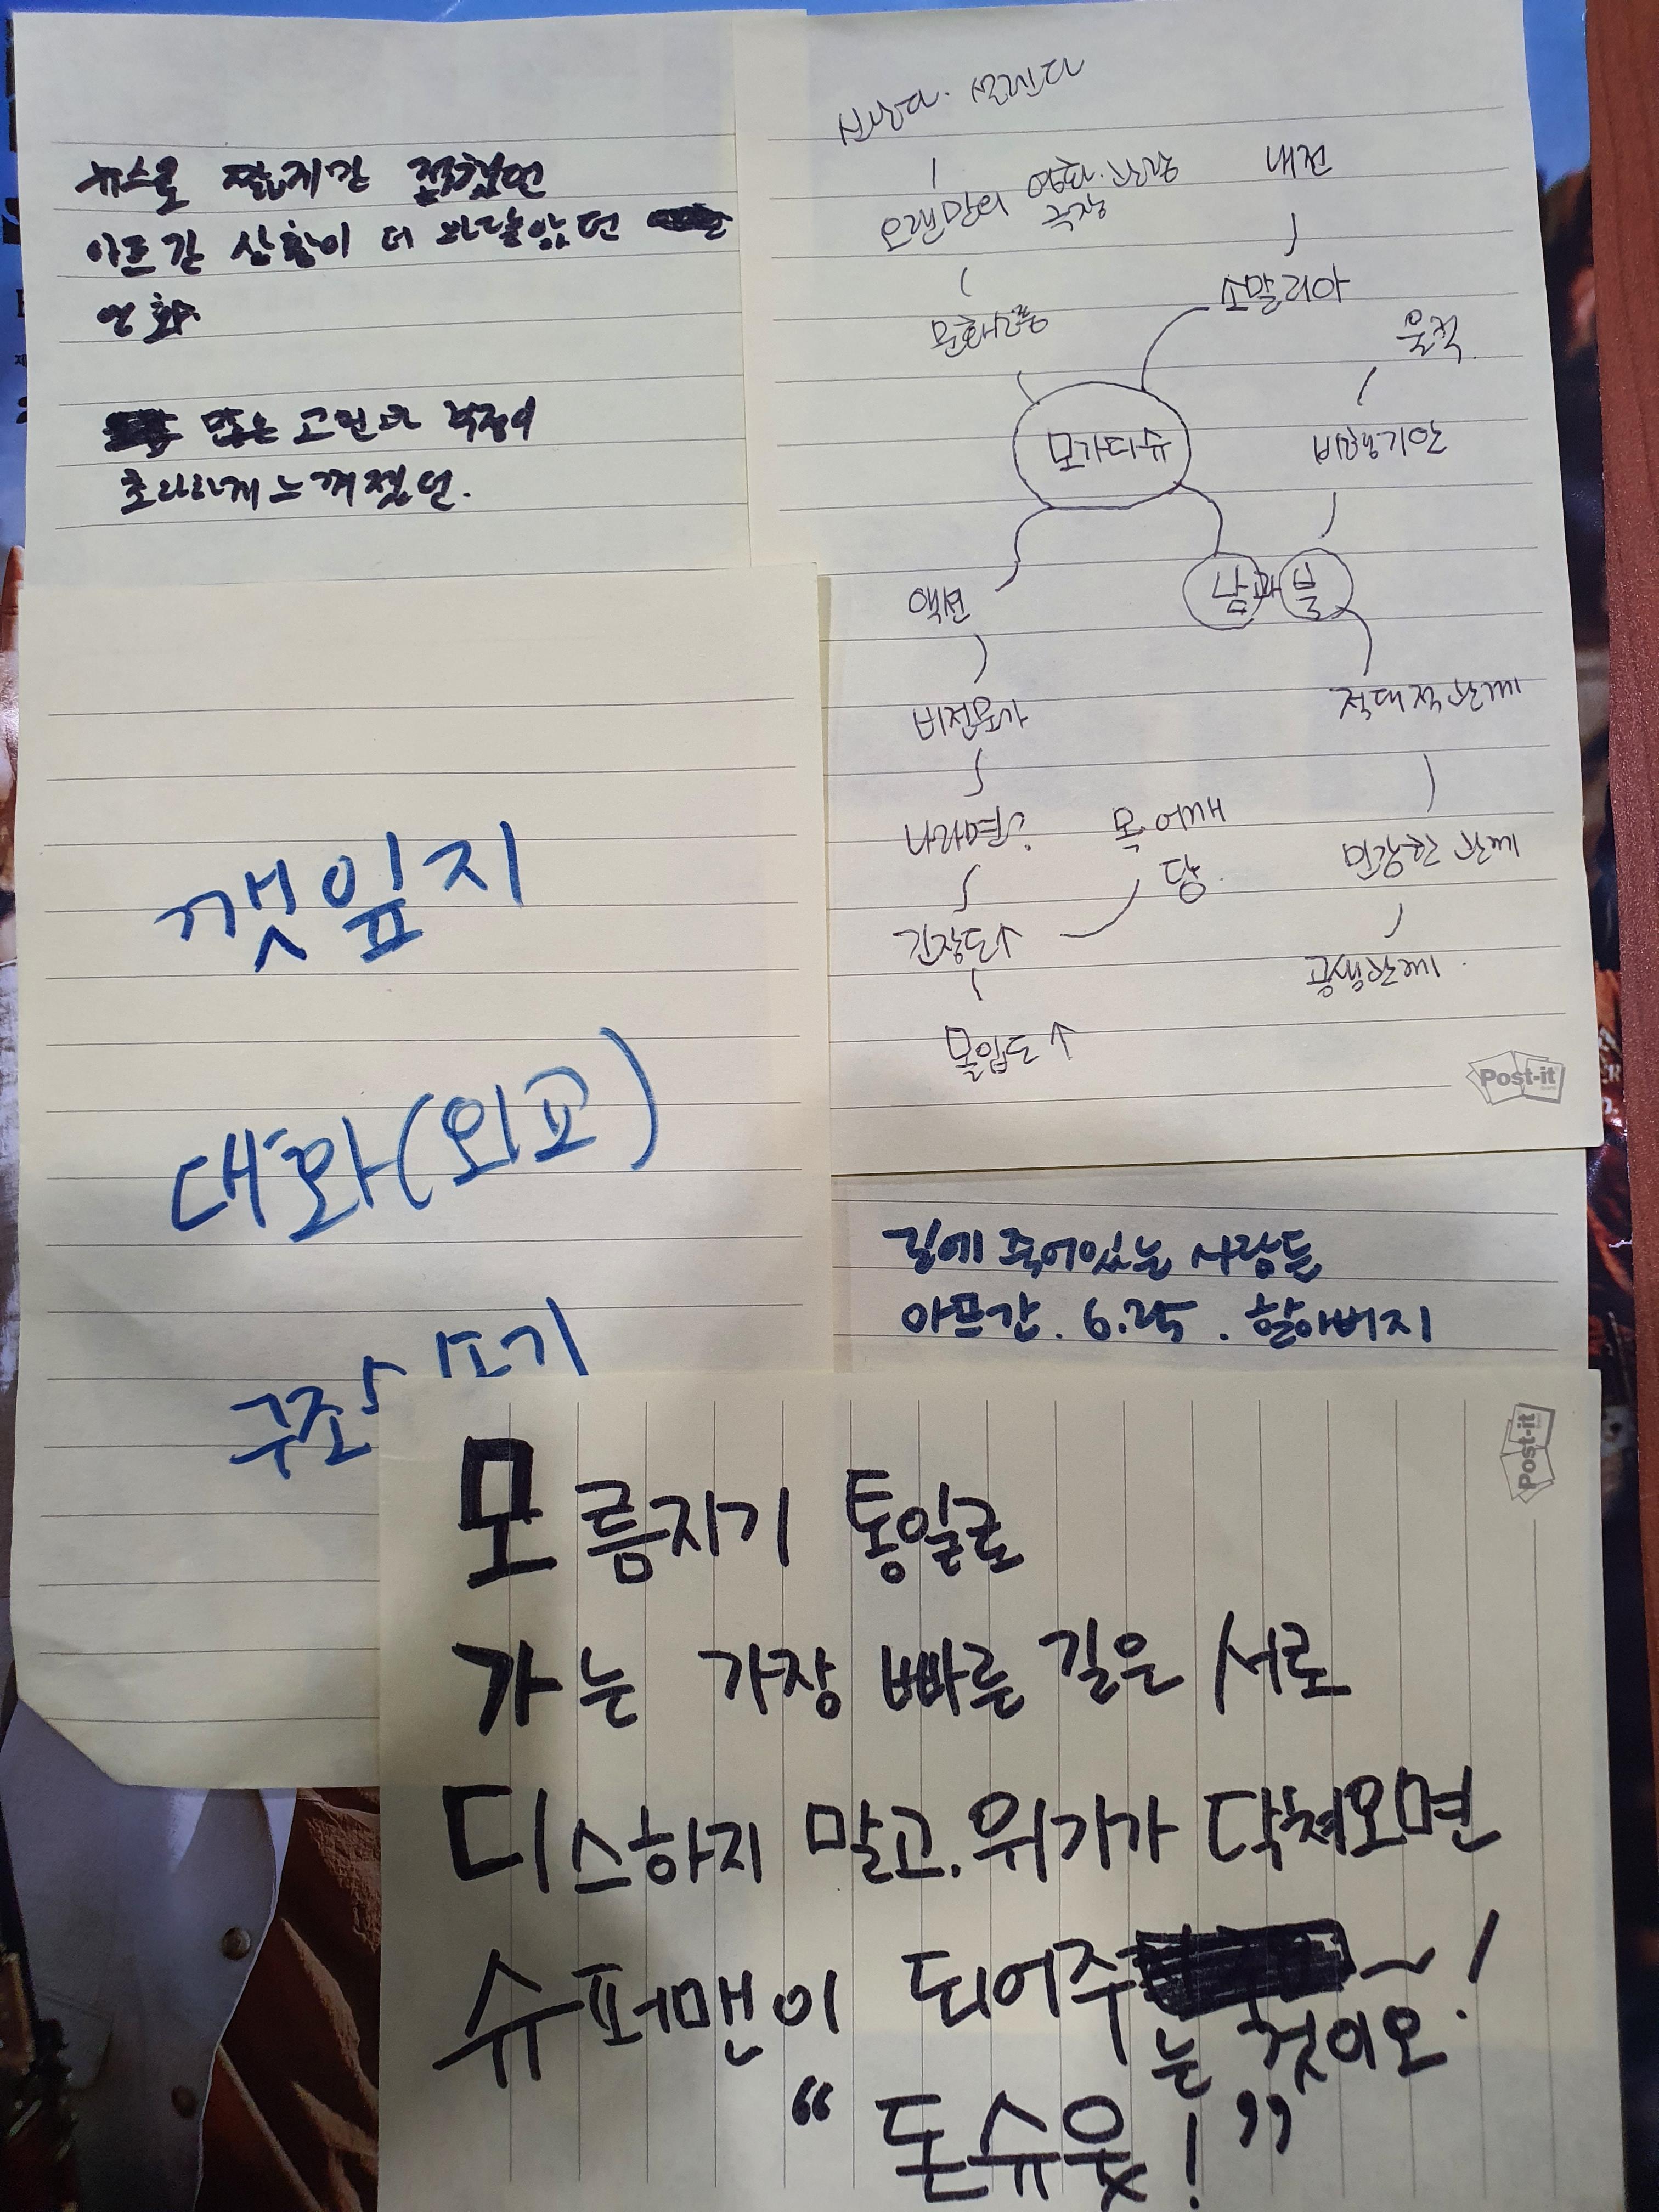 뉴스로 짧게만 접했던
아프간 상황이 더 와닿았던
영화
많은 고민과 걱정이
초라하게 느껴졌던.
신난다. 설레다
오랜만의 영화. 수원극장
내전
문화생활
소말리아
울컥.
모가디슈
비행기안
액션
남과북
비전문가
적대적관계
나라면?
목 어깨
담.
민감한 관계
긴장도↑
공생관계.
몰입도↑
Post-it
깻잎지
대화(외교)
구조
길에 죽어있는 사람들
아프간. 6.25. 할아버지
Post-it
모름지기 통일로
가는 가장 빠른 길은 서로
디스하지 말고. 위기가 닥쳐오면
슈퍼맨이 되어주~!
는 것이오.
"돈슈웃!"